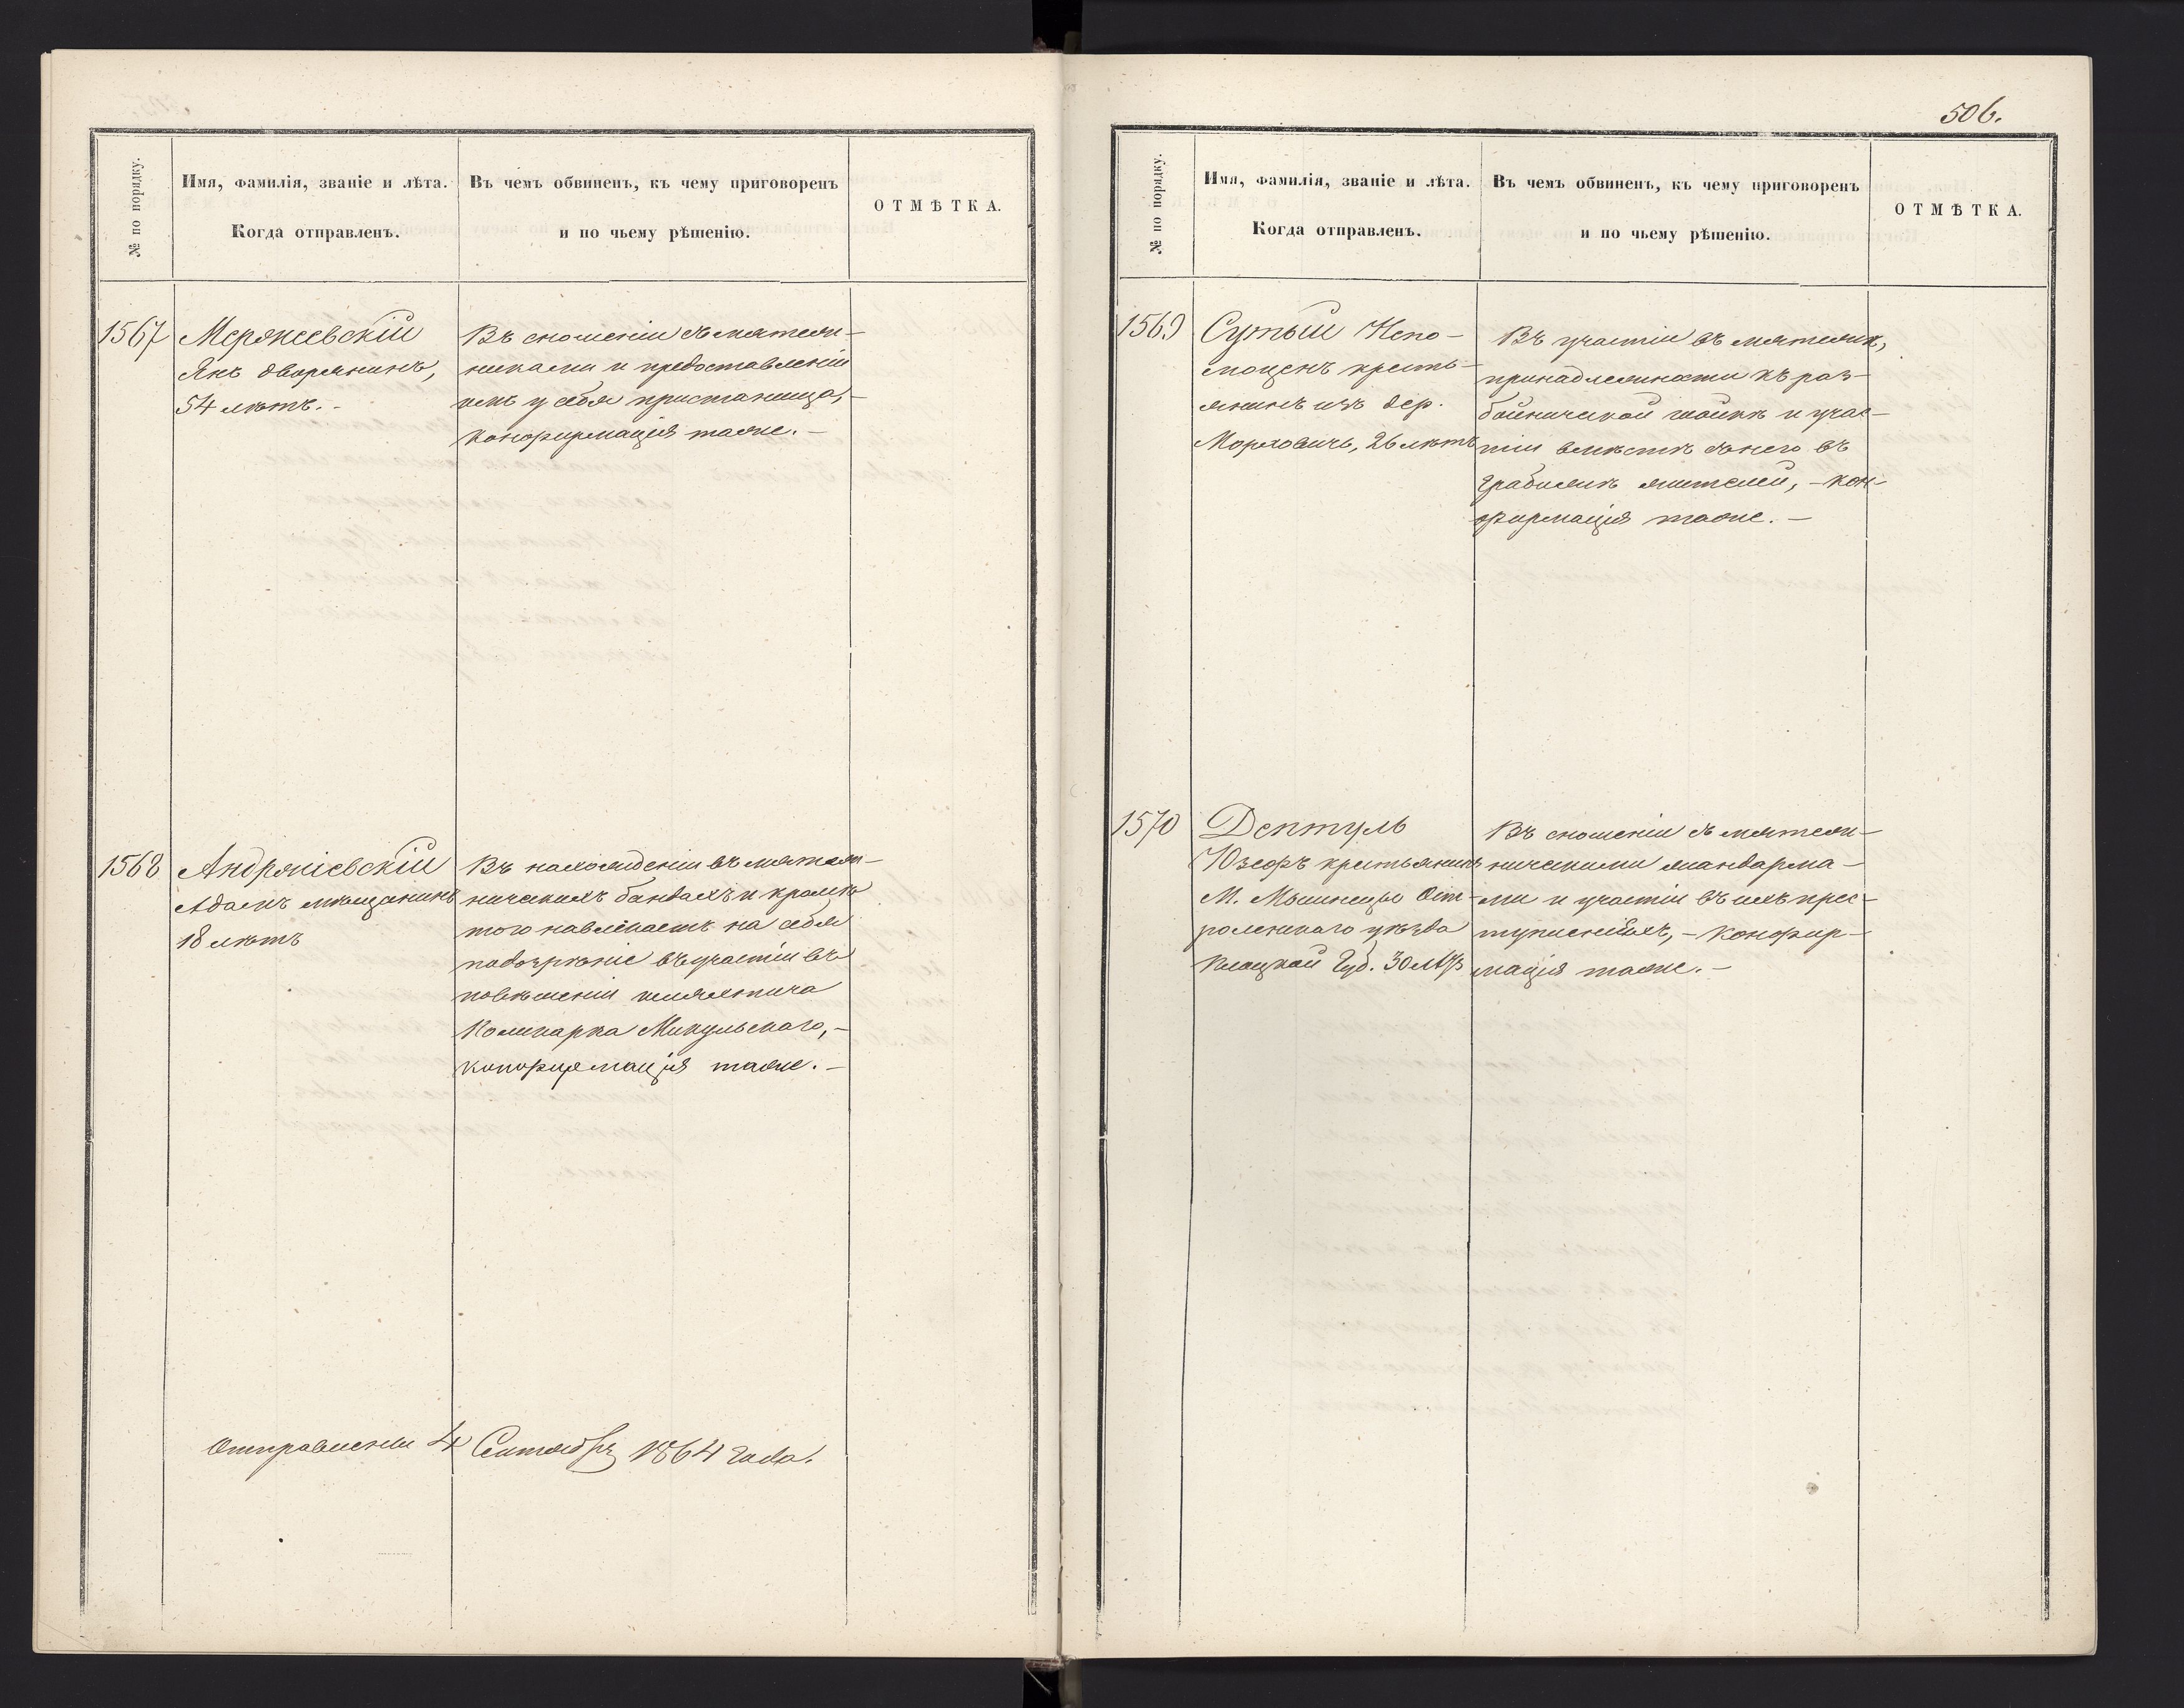 № по порядку.
Имя, фамилія, званіе и лѣта.
Когда отправленъ.
Въ чемъ обвиненъ, къ чему приговоренъ
и по чьему рѣшенію.
ОТМѢТКА.
1567
Мержеевскій
Янъ дворянинъ,
54 лѣтъ. -
Въ сношеніи съ мятеж-
никами и предоставленіи
имъ у себя пристанища, -
конофирмація тоже. -
1568
Андржіевскій
Адамъ мѣщанинъ
18 лѣтъ
Въ нахожденіи въ мятеж-
ническихъ бандахъ и кромѣ
того навлекаетъ на себя
подозрѣніе въ участіи въ
повѣшеніи шляхтича
Поликарпа Микульскаго, -
конофирмація тоже. -
Отправлены 4 Сентября 1864 года.
506.
№ по порядку.
Имя, фамилія, званіе и лѣта.
Когда отправленъ.
Въ чемъ обвиненъ, къ чему приговоренъ
и по чьему рѣшенію.
ОТМѢТКА.
1569
Сутый Непо-
моценъ кресть-
янинъ изъ дер.
26 лѣтъ
Въ участіи въ мятежѣ,
принадлежности къ раз-
бойнической шайкѣ и учас-
тіи вмѣстѣ съ нею въ
грабежѣ жителей, - кон-
офирмація тоже. -
1570
Дептуль
Юзефъ крестьянинъ
М. Мышинецъ Ост-
роленскаго уѣзда
Плоцкой Губ. 30 лѣтъ
Въ сношеніи съ мятеж-
ническими жандарма-
ми и участіи въ ихъ прес-
тупленіяхъ, - Конофир-
мація тоже. -